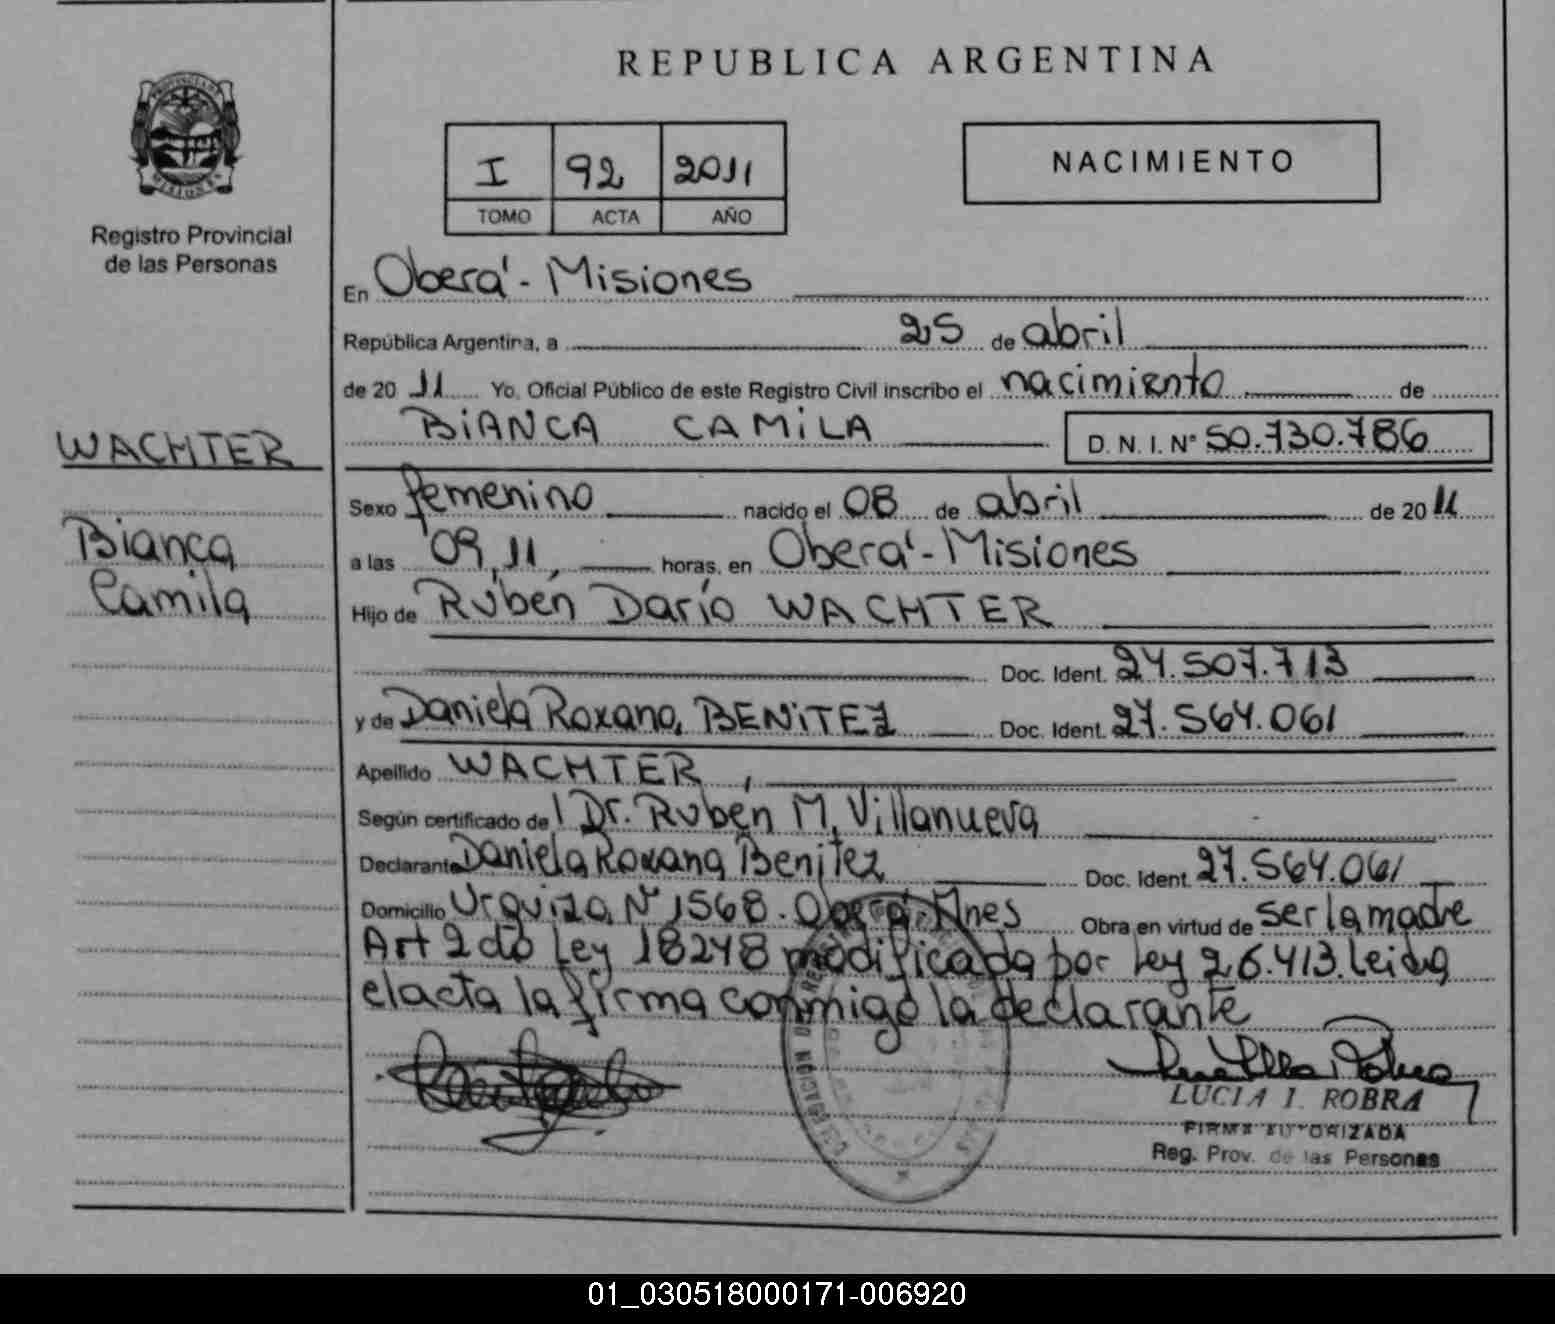 REPUBLICA ARGENTINA
PROVINCIA
MISIONES
Registro Provincial
de las Personas
I 92 2011
TOMO ACTA AÑO
NACIMIENTO
En Oberá - Misiones
República Argentina, a 25 de abril
de 20 11 Yo, Oficial Público de este Registro Civil inscribo el nacimiento de
BIANCA CAMILA D. N. I. N° 50.730.786
WACHTER
Bianca
Camila
Sexo femenino nacido el 08 de abril de 20 11
a las 09,11, horas, en Oberá - Misiones
Hijo de Rubén Darío WACHTER
Doc. Ident. 24.507.713
y de Daniela Roxana BENITEZ Doc. Ident. 27.564.061
Apellido WACHTER,
Según certificado del Dr. Rubén M. Villanueva
Declarante Daniela Roxana Benitez Doc. Ident. 27.564.061
Domicilio Urquiza N° 1568. Oberá. Mnes Obra en virtud de ser la madre
Art 2do Ley 18248 modificada por Ley 26.413. Leida
el acta la firma conmigo la declarante
LUCIA I. ROBRA
FIRMA AUTORIZADA
Reg. Prov. de las Personas
01_030518000171-006920